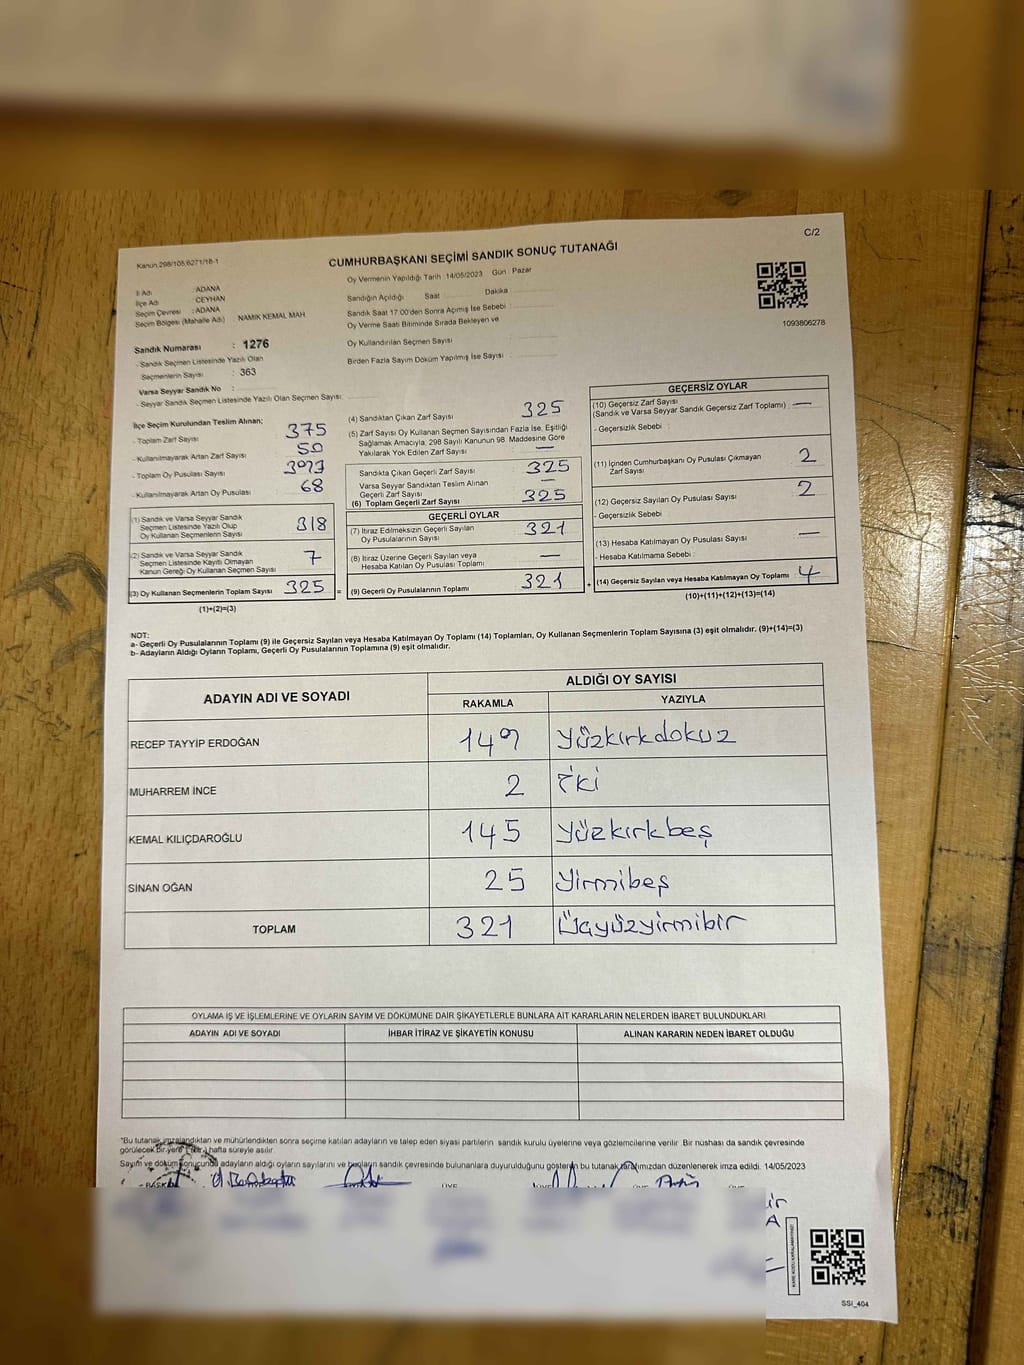 C/2
Kanun:298/105,6271/18-1
CUMHURBAŞKANI SEÇİMİ SANDIK SONUÇ TUTANAĞI
İl Adı : ADANA
İlçe Adı : CEYHAN
Seçim Çevresi : ADANA
Seçim Bölgesi (Mahalle Adı) : NAMIK KEMAL MAH
Sandık Numarası : 1276
- Sandık Seçmen Listesinde Yazılı Olan
Seçmenlerin Sayısı : 363
Varsa Seyyar Sandık No :
- Seyyar Sandık Seçmen Listesinde Yazılı Olan Seçmen Sayısı:
Oy Vermenin Yapıldığı Tarih : 14/05/2023 Gün : Pazar
Sandığın Açıldığı Saat Dakika
Sandık Saat 17:00'den Sonra Açılmış İse Sebebi :
Oy Verme Saati Bitiminde Sırada Bekleyen ve
Oy Kullandırılan Seçmen Sayısı :
Birden Fazla Sayım Döküm Yapılmış İse Sayısı :
1093806278
İlçe Seçim Kurulundan Teslim Alınan;
- Toplam Zarf Sayısı 375
- Kullanılmayarak Artan Zarf Sayısı 50
- Toplam Oy Pusulası Sayısı
- Kullanılmayarak Artan Oy Pusulası 68
(1) Sandık ve Varsa Seyyar Sandık
Seçmen Listesinde Yazılı Olup
Oy Kullanan Seçmenlerin Sayısı 318
(2) Sandık ve Varsa Seyyar Sandık
Seçmen Listesinde Kayıtlı Olmayan
Kanun Gereği Oy Kullanan Seçmen Sayısı 7
(3) Oy Kullanan Seçmenlerin Toplam Sayısı 325 =
(1)+(2)=(3)
(4) Sandıktan Çıkan Zarf Sayısı 325
(5) Zarf Sayısı Oy Kullanan Seçmen Sayısından Fazla İse, Eşitliği
Sağlamak Amacıyla, 298 Sayılı Kanunun 98. Maddesine Göre
Yakılarak Yok Edilen Zarf Sayısı —
Sandıkta Çıkan Geçerli Zarf Sayısı 325
Varsa Seyyar Sandıktan Teslim Alınan
Geçerli Zarf Sayısı —
(6) Toplam Geçerli Zarf Sayısı 325
GEÇERLİ OYLAR
(7) İtiraz Edilmeksizin Geçerli Sayılan
Oy Pusulalarının Sayısı 321
(8) İtiraz Üzerine Geçerli Sayılan veya
Hesaba Katılan Oy Pusulası Toplamı —
(9) Geçerli Oy Pusulalarının Toplamı 321 +
GEÇERSİZ OYLAR
(10) Geçersiz Zarf Sayısı
(Sandık ve Varsa Seyyar Sandık Geçersiz Zarf Toplamı) —
- Geçersizlik Sebebi :
(11) İçinden Cumhurbaşkanı Oy Pusulası Çıkmayan
Zarf Sayısı 2
(12) Geçersiz Sayılan Oy Pusulası Sayısı 2
- Geçersizlik Sebebi
(13) Hesaba Katılmayan Oy Pusulası Sayısı —
- Hesaba Katılmama Sebebi :
(14) Geçersiz Sayılan veya Hesaba Katılmayan Oy Toplamı 4
(10)+(11)+(12)+(13)=(14)
NOT:
a- Geçerli Oy Pusulalarının Toplamı (9) ile Geçersiz Sayılan veya Hesaba Katılmayan Oy Toplamı (14) Toplamları, Oy Kullanan Seçmenlerin Toplam Sayısına (3) eşit olmalıdır. (9)+(14)=(3)
b- Adayların Aldığı Oyların Toplamı, Geçerli Oy Pusulalarının Toplamına (9) eşit olmalıdır.
ADAYIN ADI VE SOYADI
ALDIĞI OY SAYISI
RAKAMLA YAZIYLA
RECEP TAYYİP ERDOĞAN 149 yüzkırkdokuz
MUHARREM İNCE 2 iki
KEMAL KILIÇDAROĞLU 145 yüzkırkbeş
SİNAN OĞAN 25 yirmibeş
TOPLAM 321 Üçyüzyirmibir
OYLAMA İŞ VE İŞLEMLERİNE VE OYLARIN SAYIM VE DÖKÜMÜNE DAİR ŞİKAYETLERLE BUNLARA AİT KARARLARIN NELERDEN İBARET BULUNDUKLARI
ADAYIN ADI VE SOYADI İHBAR İTİRAZ VE ŞİKAYETİN KONUSU ALINAN KARARIN NEDEN İBARET OLDUĞU
*Bu tutanak imzalandıktan ve mühürlendikten sonra seçime katılan adayların ve talep eden siyasi partilerin sandık kurulu üyelerine veya gözlemcilerine verilir. Bir nüshası da sandık çevresinde
görülecek bir yere hafta süreyle asılır.
Sayım ve döküm sonucunda adayların aldığı oyların sayılarını ve bunların sandık çevresinde bulunanlara duyurulduğunu gösteren bu tutanak tarafımızdan düzenlenerek imza edildi. 14/05/2023
SSI_404